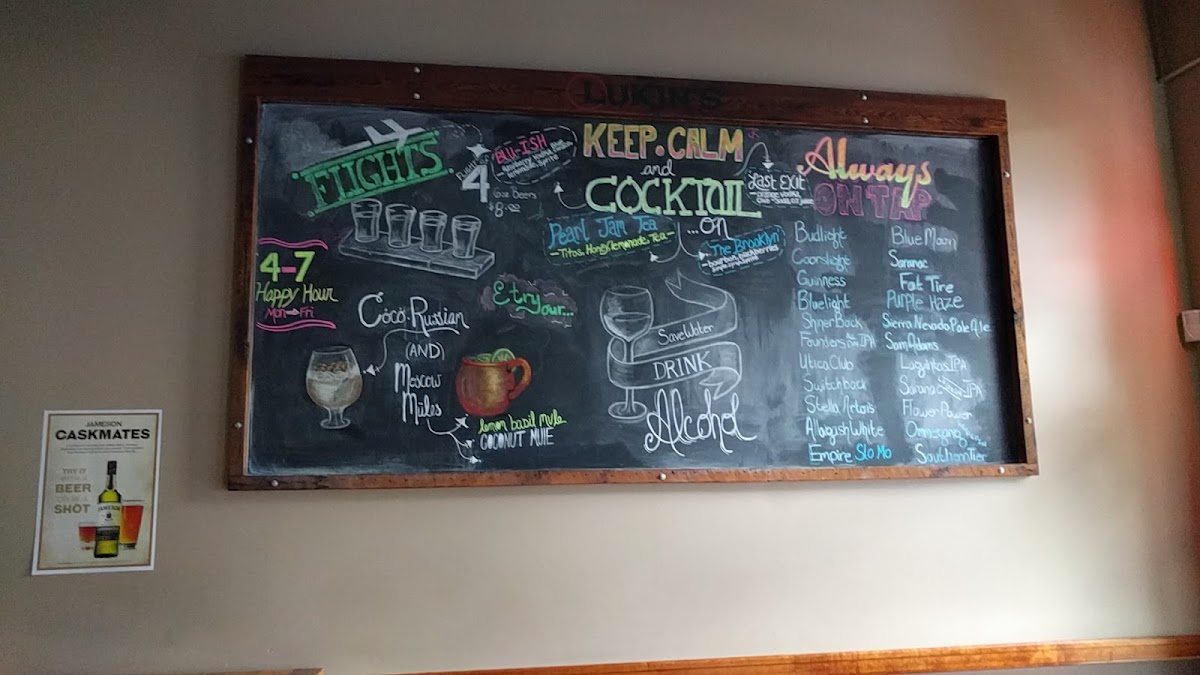 LUKIN'S
FLIGHTS
4
8oz Beers
$8.00
BLU-ISH
KEEP.CALM
and
COCKTAIL
...on
Pearl Jam Tea
-Titos, Honey, lemonade, Tea-
The Brooklyn
-bourbon, blackberries
Last Exit
4-7
Happy Hour
Mon Fri
E try our...
Coco-Russian
(AND)
Moscow
Mules
lemon basil mule
COCONUT MULE
Save Water
DRINK
Alcohol
Always
ON TAP
Budlight
Coorslight
Guinness
Bluelight
ShinerBock
Founders IPA
Utica Club
Switchback
Stella Artois
Allagash White
Empire Slo Mo
Blue Moon
Saranac
Fat Tire
Purple Haze
Sierra Nevada Pale Ale
Sam Adams
Lagunitas IPA
Flower Power
Ommegang
Southern Tier
JAMESON
CASKMATES
TRY IT
WITH A
BEER
OR AS A
SHOT
JAMESON